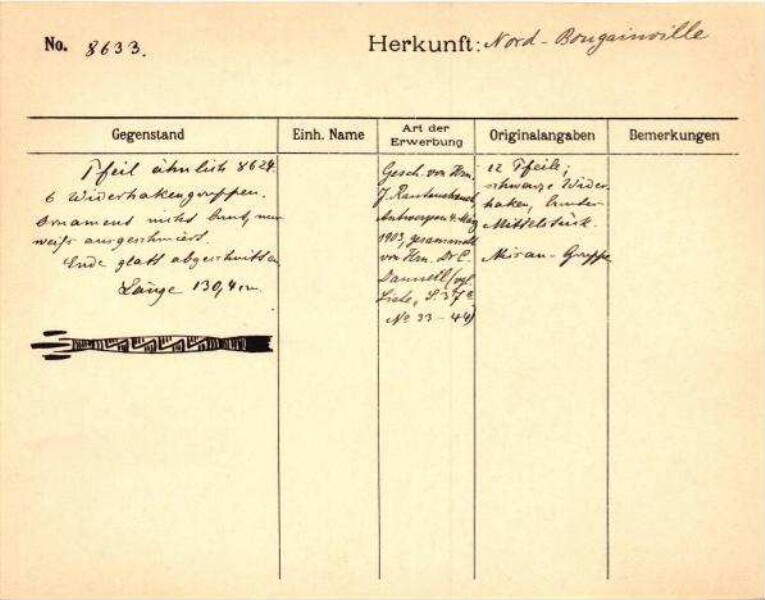 No. 8633.
Herkunft: Nord-Bougainville
Gegenstand
Einh. Name
Art der Erwerbung
Originalangaben
Bemerkungen
Pfeil ähnlich 8624.
6 Widerhakengruppen.
Ornament nicht bunt, nur
weiß ausgeschmiert.
Ende glatt abgeschnitten
Länge 130,4 cm.
Gesch. von Hrn.
J. Rautenstrauch,
Antwerpen 4. März
1903, gesammelt
von Hrn. Dr C.
Dannell (vgl.
Liste, S. 37
No 33-44)
12 Pfeile;
schwarze Wider-
haken, bunter
Mittelstück.
Gruppe